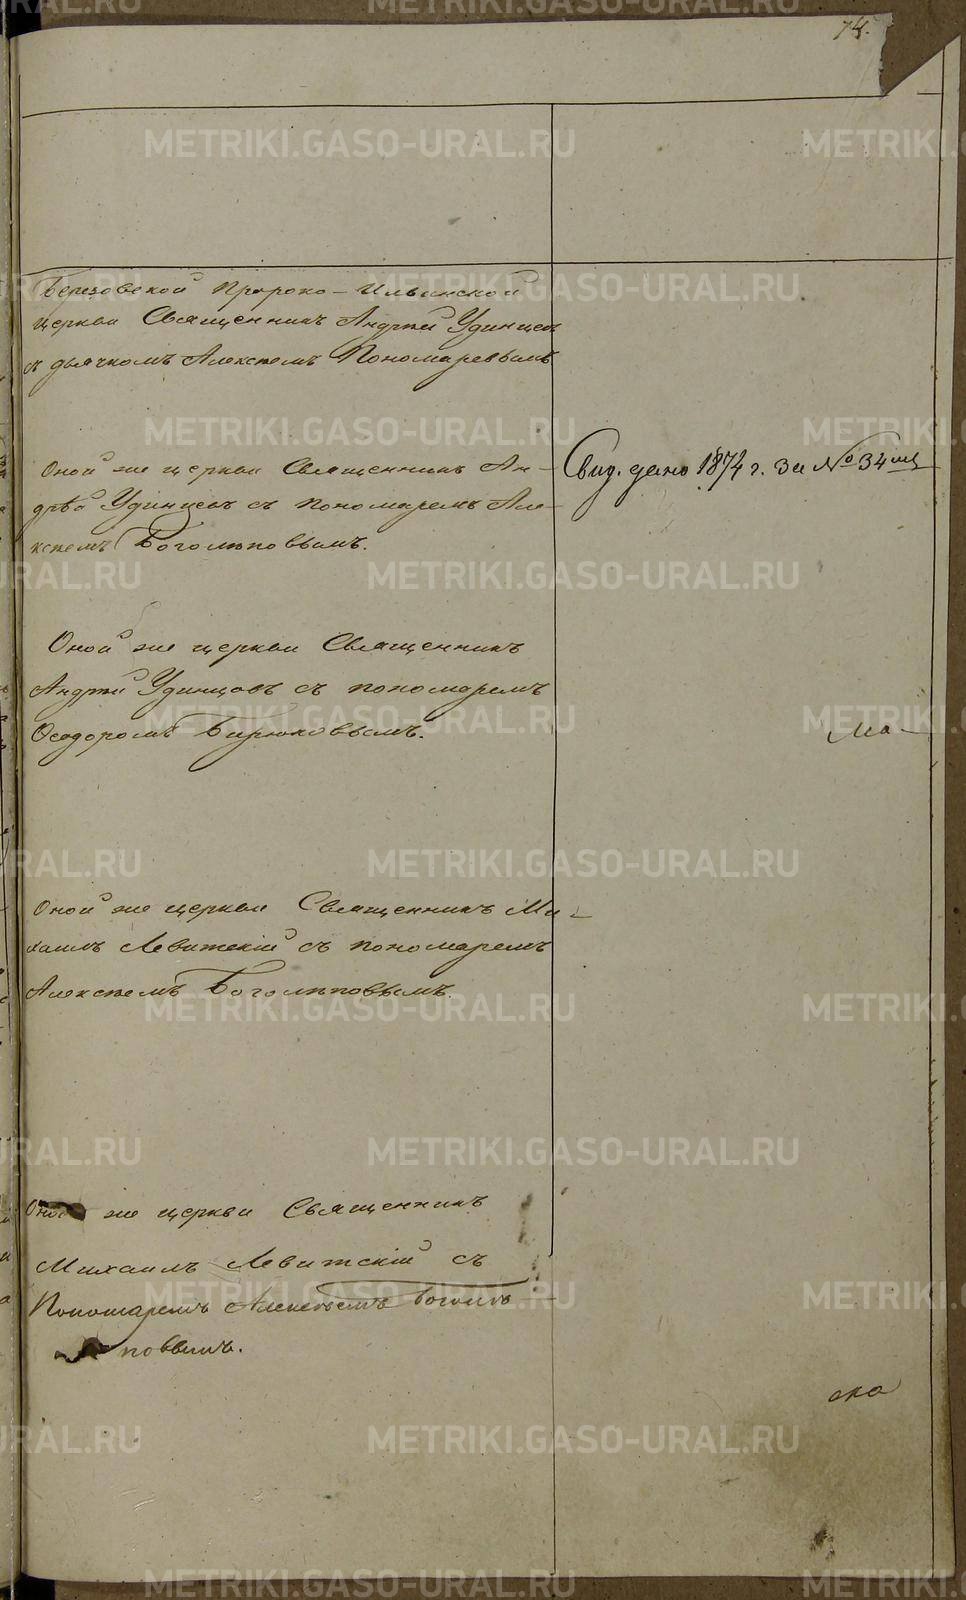 74.
Березовской Пророко-Ильинской
церкви Священникъ Андрей Удинцевъ
съ дьячкомъ Алексѣемъ Пономаревымъ
Оной же церкви Священникъ Ан-
дрѣй Удинцевъ съ пономаремъ Але-
ксѣемъ Боголѣповымъ.
Свид. дано 1874 г. за № 34
Оной же церкви Священникъ
Андрей Удинцовъ съ пономаремъ
Ѳеодоромъ Бирюковымъ.
Ма-
Оной же церкви Священникъ Ми-
хаилъ Левитскій съ пономаремъ
Алексѣемъ Боголѣповымъ.
Оной же церкви Священникъ
Михаилъ Левитскій съ
Пономаремъ Алексѣемъ Боголѣ-
повымъ.
ска
METRIKI.GASO-URAL.RU